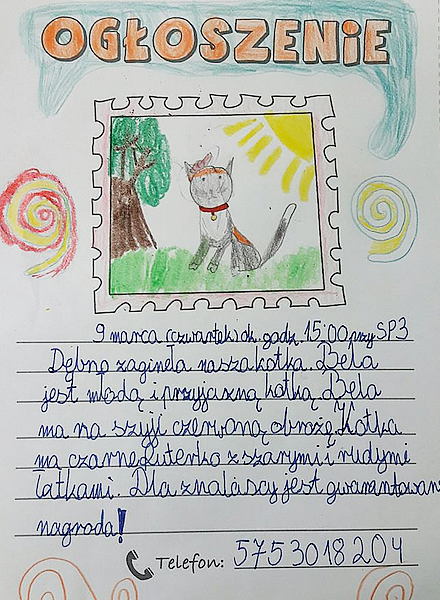 OGŁOSZENIE
9 marca (czwartek) ok. godz. 15:00 przy SP3
Dębno zaginęła nasza kotka. Bela
jest młodą i przyjazną kotką. Bela
ma na szyji czerwoną obrożę. Kotka
ma czarne futerko z szarymi i rudymi
łatkami. Dla znalascy jest gwarantowan
nagroda!
Telefon: 5753018204